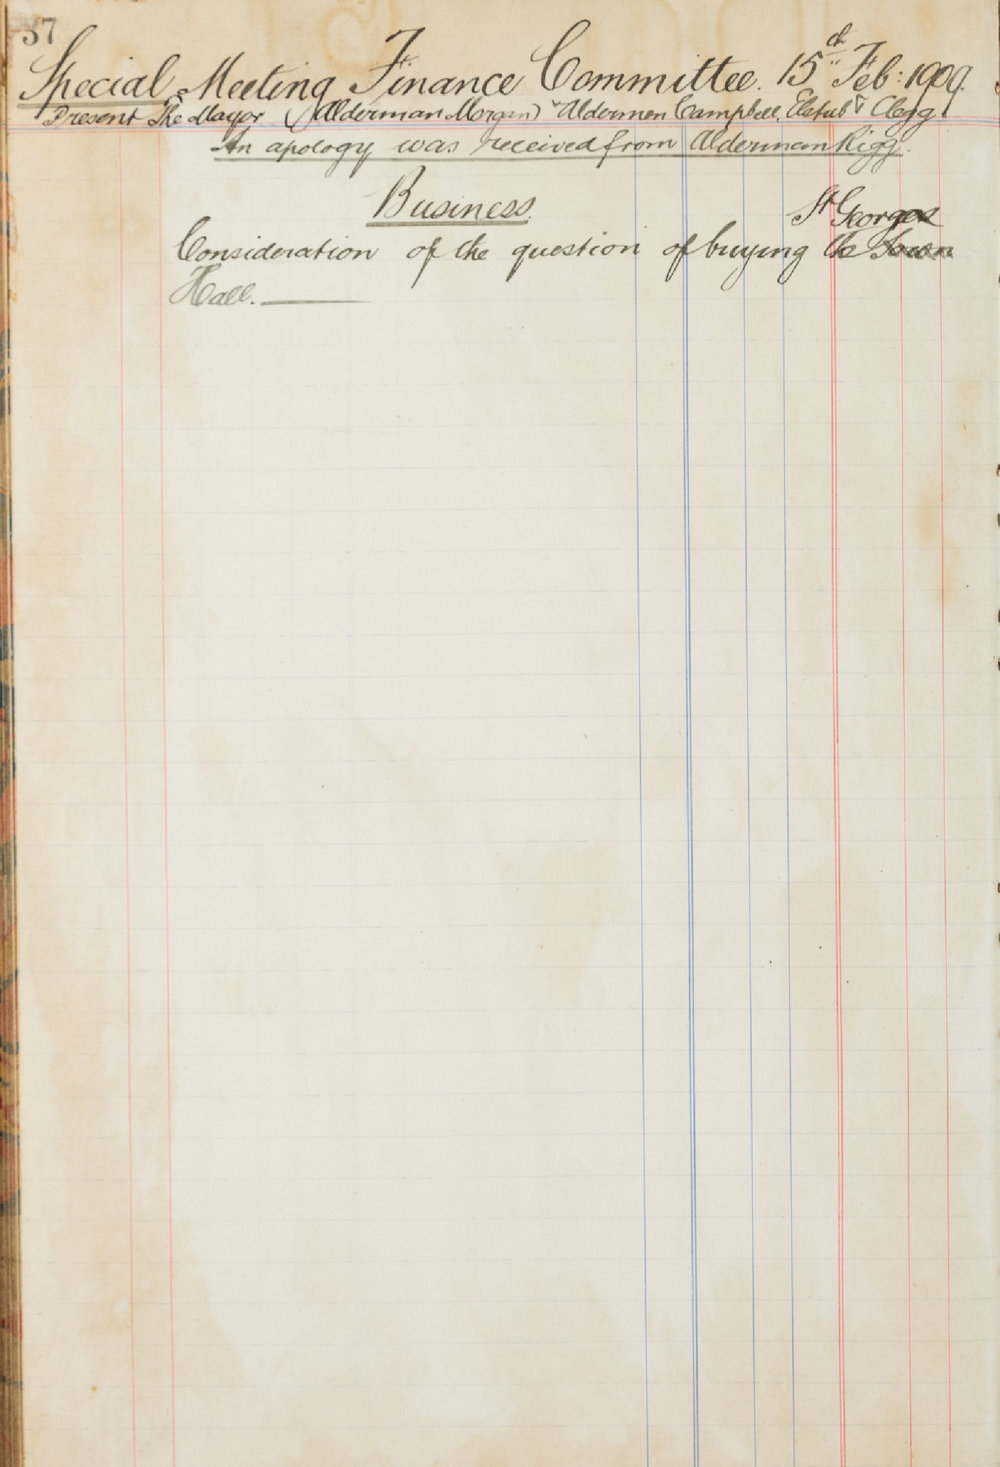 37
Special Meeting Finance Committee. 15th Feb: 1909.
Present The Mayor (Alderman Morgan) & Aldermen Campbell, & Clegg
An apology was received from Alderman Rigg.
Business.
St Georges
Consideration of the question of buying the Town
Hall.